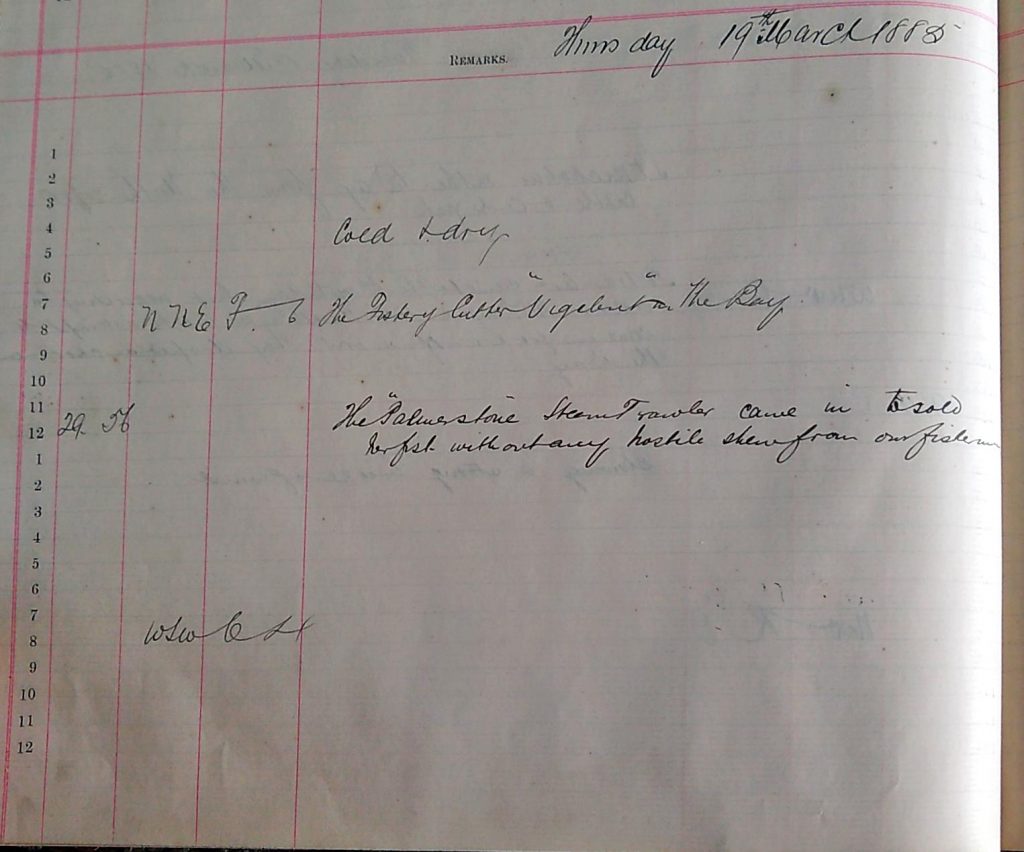 Thursday 19th March 1885
REMARKS.
1
2
3
4 Cold & dry
5
6
7 N N E F. 6 The Fishery Cutter "Vigelent" in The Bay.
8
9
10
11 The "Palmerstone Steam Trawler came in & sold
12 29. 56 her fish without any hostile shew from our fishermen
1
2
3
4
5
6
7
8 WSW C
9
10
11
12